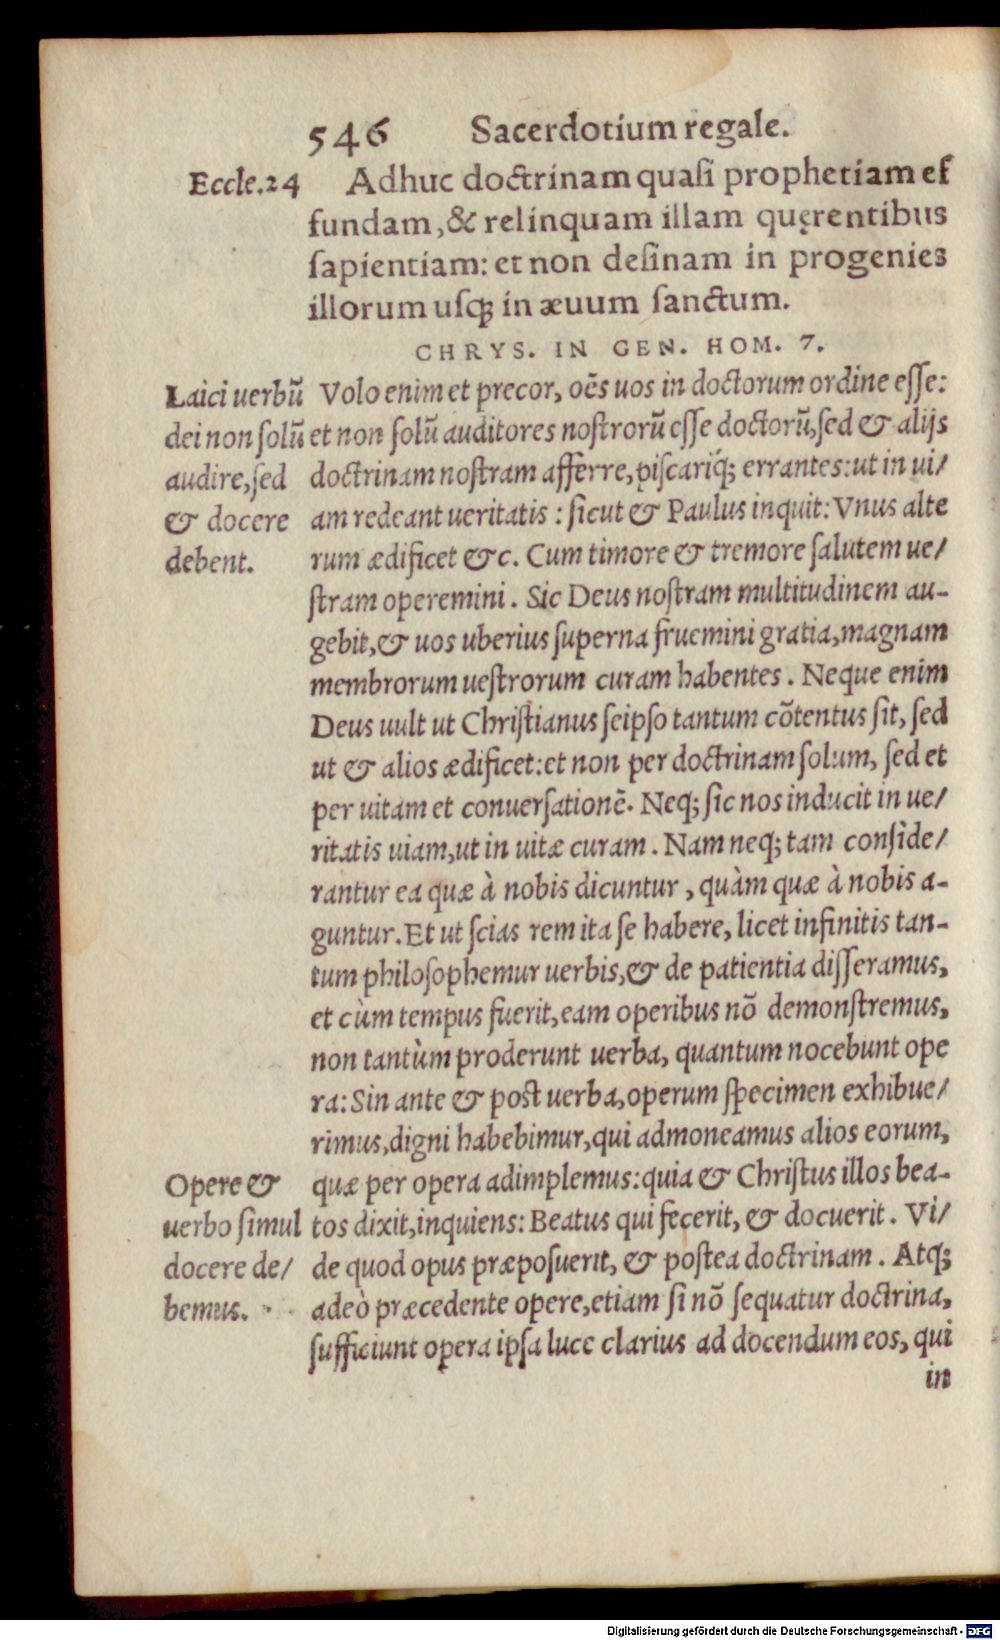 546 Sacerdotium regale.
Eccle.24 Adhuc doctrinam quasi prophetiam ef
fundam, & relinquam illam quęrentibus
sapientiam: et non desinam in progenies
illorum usq; in æuum sanctum.
CHRYS. IN GEN. HOM. 7.
Laici uerbũ Volo enim et precor, oẽs uos in doctorum ordine esse:
dei non solũ et non solũ auditores nostrorũ esse doctorũ, sed & alijs
audire, sed doctrinam nostram afferre, piscariq́; errantes: ut in ui/
& docere am redeant ueritatis : sicut & Paulus inquit: Vnus alte
debent. rum ædificet &c. Cum timore & tremore salutem ue/
stram operemini . Sic Deus nostram multitudinem au-
gebit, & uos uberius superna fruemini gratia, magnam
membrorum uestrorum curam habentes . Neque enim
Deus uult ut Christianus seipso tantum cõtentus sit, sed
ut & alios ædificet: et non per doctrinam solum, sed et
per uitam et conuersationẽ. Neq; sic nos inducit in ue/
ritatis uiam, ut in uitæ curam . Nam neq; tam conside/
rantur ea quæ à nobis dicuntur , quàm quæ à nobis a-
guntur. Et ut scias rem ita se habere, licet infinitis tan-
tum philosophemur uerbis, & de patientia disseramus,
et cùm tempus fuerit, eam operibus nõ demonstremus,
non tantùm proderunt uerba, quantum nocebunt ope
ra: Sin ante & post uerba, operum specimen exhibue/
rimus, digni habebimur, qui admoneamus alios eorum,
Opere & quæ per opera adimplemus: quia & Christus illos bea-
uerbo simul tos dixit, inquiens: Beatus qui fecerit, & docuerit . Vi/
docere de/ de quod opus præposuerit, & postea doctrinam . Atq;
bemus. adeò præcedente opere, etiam si nõ sequatur doctrina,
sufficiunt opera ipsa luce clarius ad docendum eos, qui
in
Digitalisierung gefördert durch die Deutsche Forschungsgemeinschaft - DFG